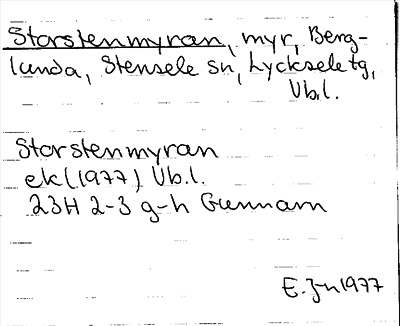 Storstenmyran, myr, Berg-
lunda, Stensele sn, Lycksele tg,
Vb.l.
Storstenmyran
ek (1977) Vb.l.
23H 2-3 g-h Gunnarn
E. Jn 1977